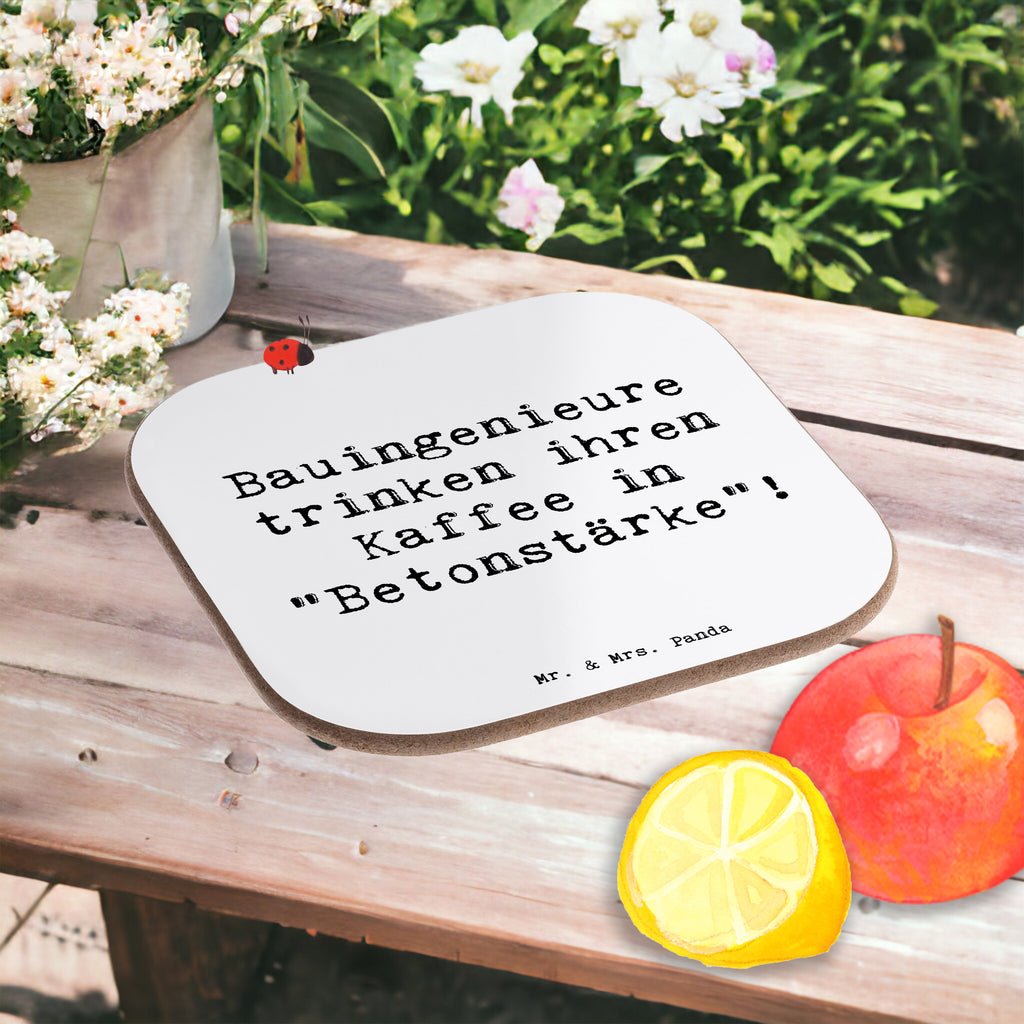 Bauingenieure
trinken ihren
Kaffee in
"Betonstärke"!
Mr. & Mrs. Panda